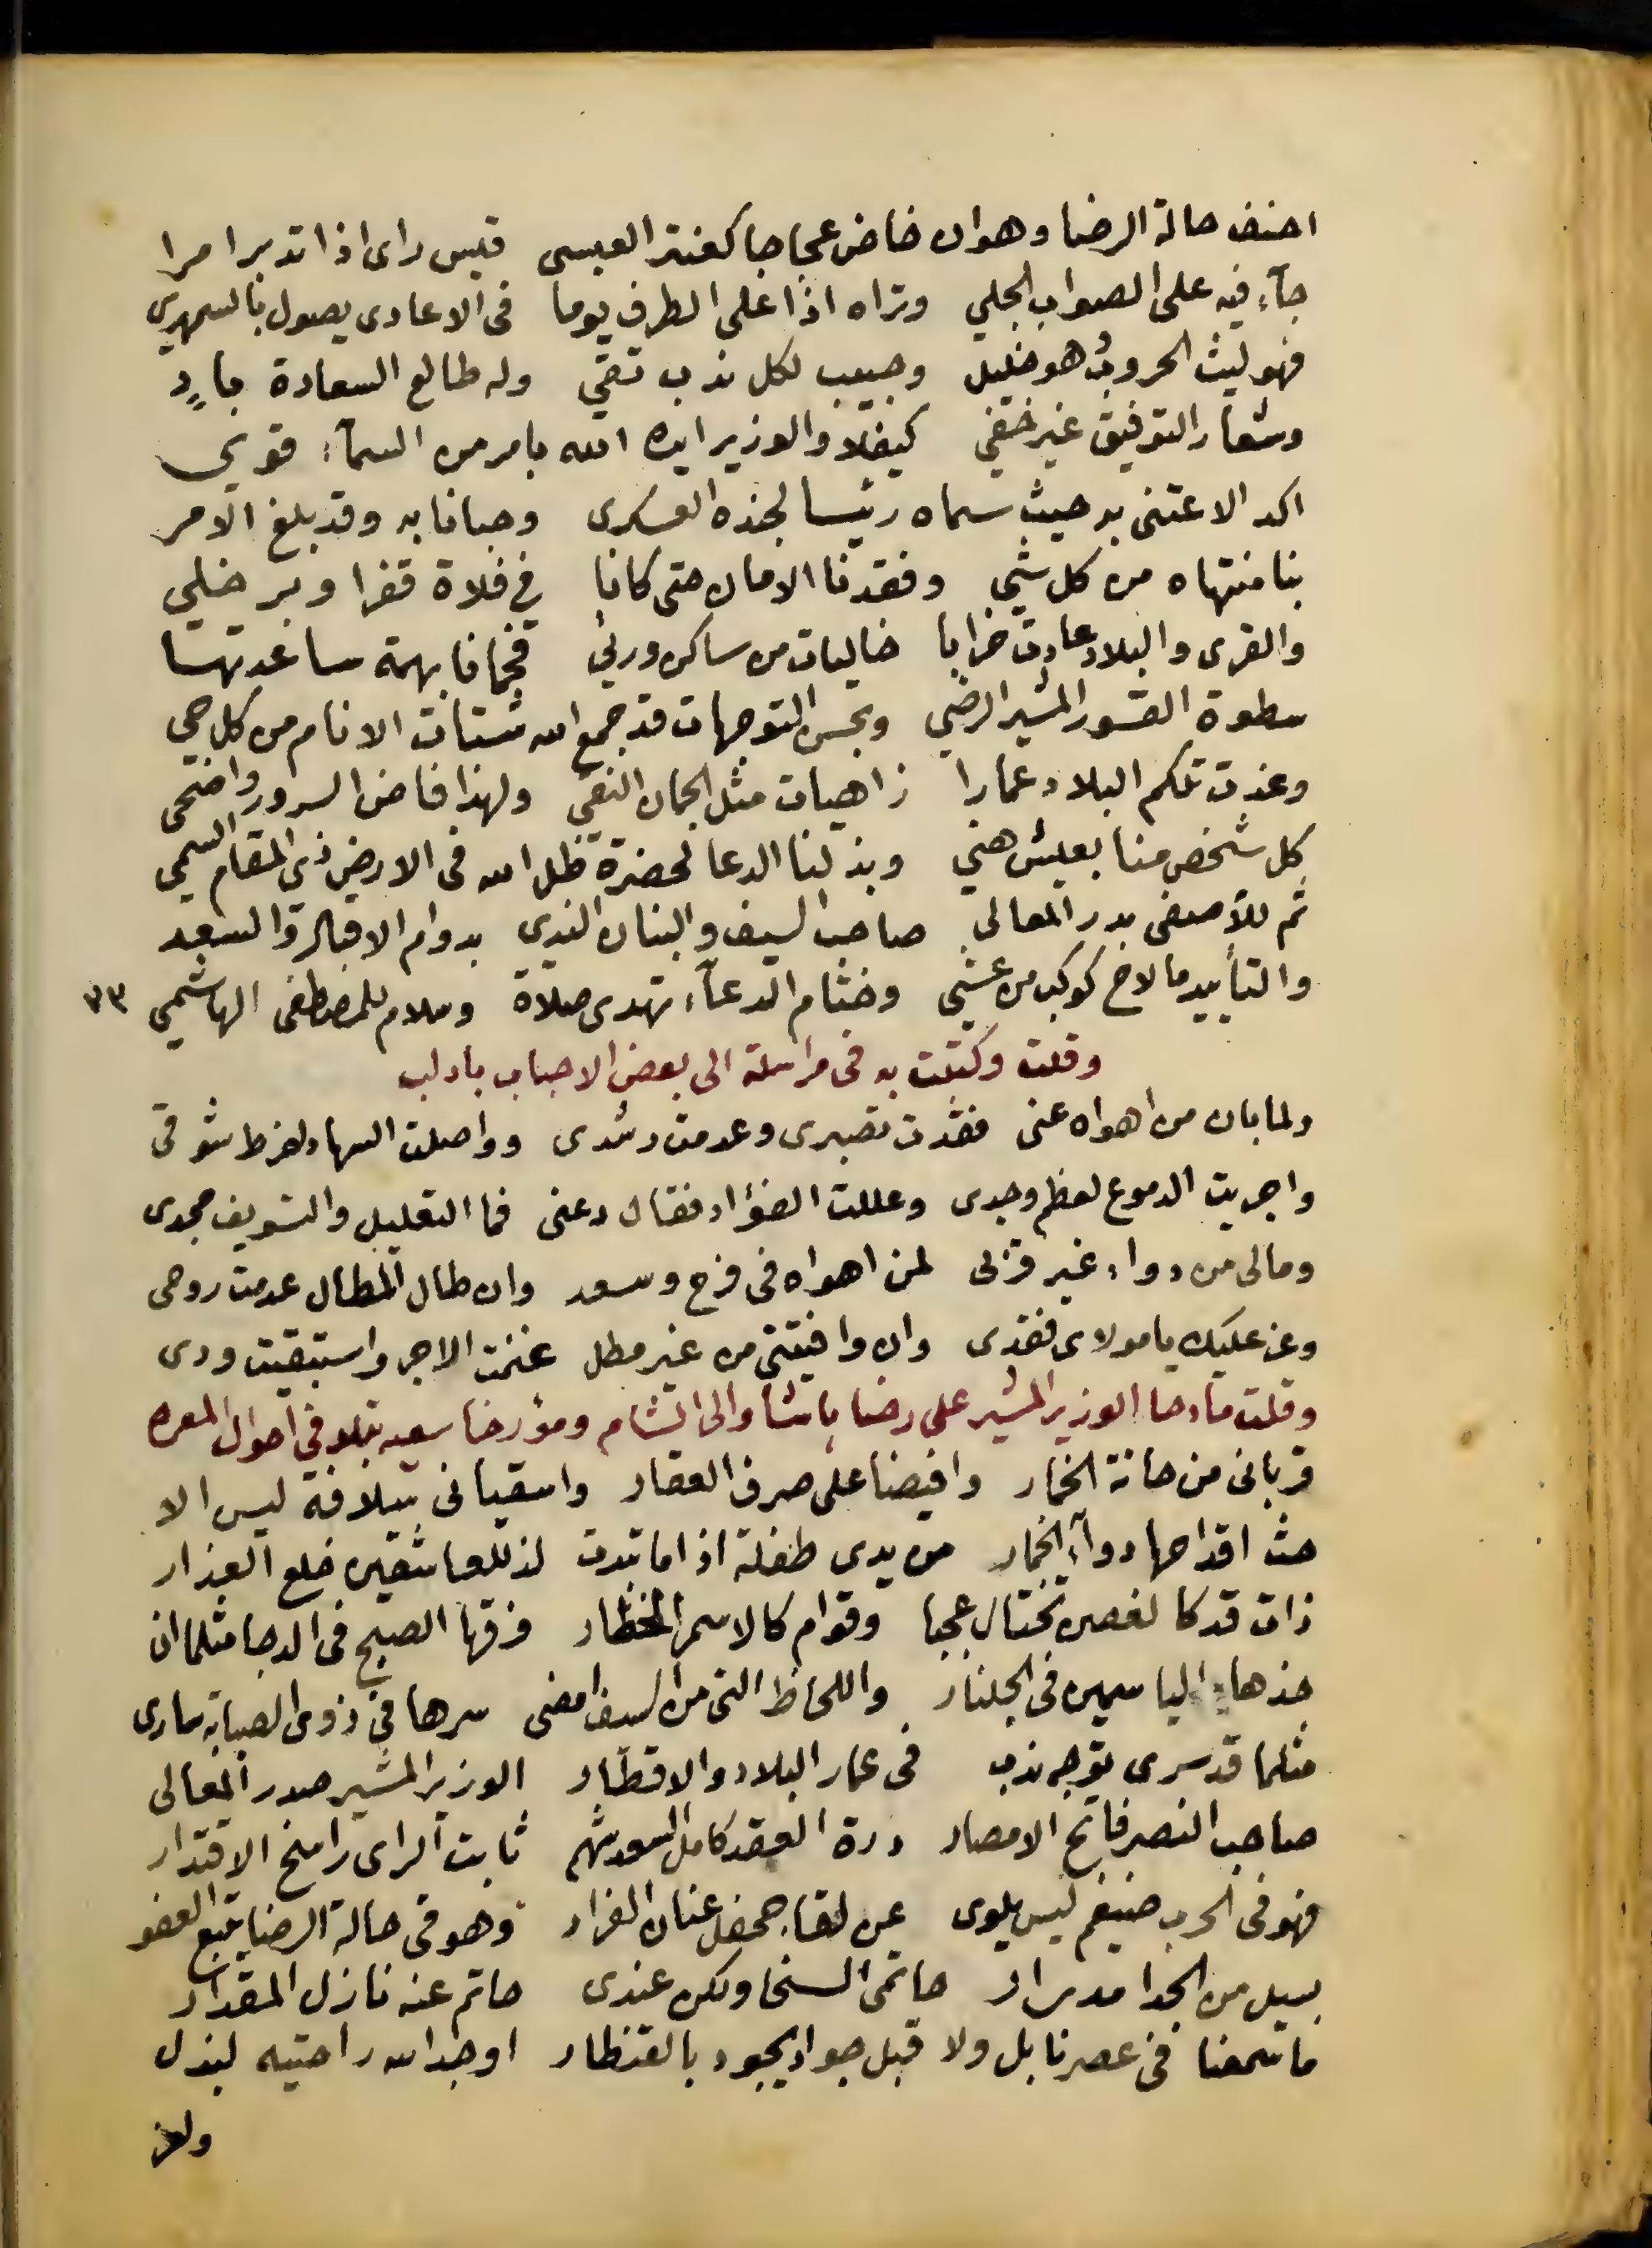 احنف حالة الرضا وهوان خاض عجاجا كعنتر العبسى قيس راى اذا تدبر امرا
جآء فيه على الصواب الجلي وتراه اذا على الطرف يوما فى الاعادى يصول بالسمهري
فهو ليث الحروب هو خليل وحبيب لكل ندب تقي وله طالع السعادة باد
وشعار التوفيق غير خفي كيف لا والوزير ايده الله بامر من السمآء قوي
اكد الاعتنى به حيث سماه رئيسا لجنده العسكرى وحبانا به وقد بلغ الامر
بنا منتهاه من كل شي وفقدنا الامان حتى كانا في فلاة قفرا وبر خلي
والقرى والبلاد عادت خرابا خاليات من ساكن ورئي فحمانا بهمة ساعدتها
سطوة القسور المشير الرضي وبحسن التوجهات قد جمع الله شتات الانام من كل حي
وغدت تلكم البلاد عمارا زاهيات مثل الجمان النقي ولهذا فاض السرور واضحى
كل شخص منا بعيش هني وبذلنا الدعا لحضرة ظل الله فى الارض ذي المقام السمي
ثم للآصفى بدر المعالى صاحب السيف والبنان الندي بدوام الاقبال والسعد
والتأييد ما لاح كوكب من عشي وختام الدعآء تهدى صلاة وسلام للمصطفى الهاشمي ٧٣
وقلت وكتبت به فى مراسلة الى بعض الاحباب بادلب
ولما بان من اهواه عنى فقدت تصبرى وعدمت رشدى وواصلت السهاد لفرط شوقى
واجريت الدموع لعظم وجدى وعللت الفؤاد فقال دعنى فما التعليل والتسويف مجدى
ومالى من دواء غير قربى لمن اهواه فى فرح وسعد وان طال المطال عدمت روحى
وعز عليك يا مولاى فقدى وان وافيتنى من غير مطل غنمت الاجر واستبقيت ودى
وقلت مادحا الوزير المشير على رضا باشا والى الشام ومؤرخا سعيه بتلافي احوال المعره
قربانى من حانة الخمار وافيضا على صرف العقار واسقيانى سلافة ليس الا
حث اقداحها دوآء الخمار من يدى طفلة اذا ما تبدت لذ للعاشقين خلع العذار
ذات قد كالغصن تختال عجبا وقوام كالاسمر الخطار فرقها الصبح فى الدجا مثلما ان
خذها الياسمين فى الجلنار واللحاظ التى من السيف امضى سرها في ذوى الصبابه سارى
مثلما قد سرى توجه ندب فى عمار البلاد والاقطار الوزير المشير صدر المعالى
صاحب النصر فاتح الامصار درة العقد كامل السعد شهم ثابت الراى راسخ الاقتدار
فهو فى الحرب ضيغم ليس يلوى عن لقا جحفل عنان الفرار وهو فى حالة الرضا يتبع العفو
بسيل من الجدا مدرار حاتمى السخا ولكن عندى حاتم عنه نازل المقدار
ما سمعنا فى عصرنا بل ولا قبل جواد يجود بالقنطار اوجد الله راحتيه لبذل